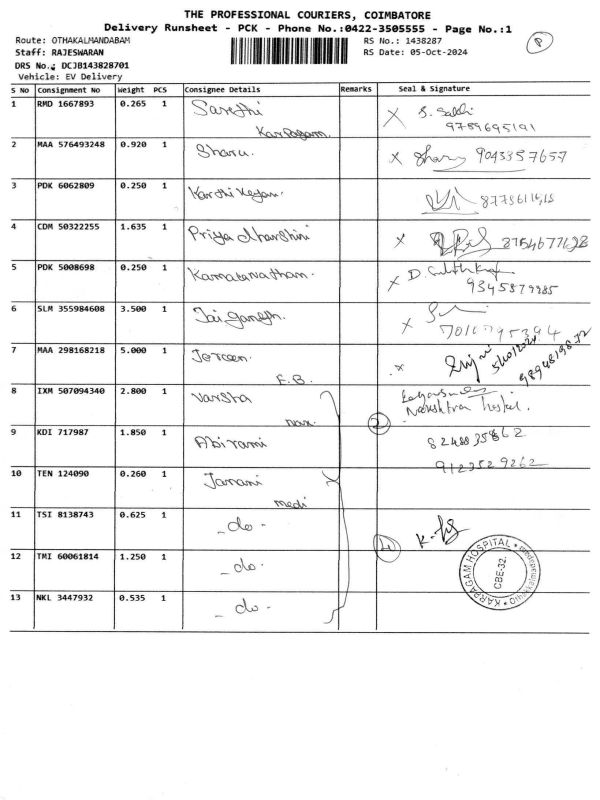 THE PROFESSIONAL COURIERS, COIMBATORE
Delivery Runsheet - PCK - Phone No.:0422-3505555 - Page No.:1
Route: OTHAKALMANDABAM RS No.: 1438287
Staff: RAJESWARAN RS Date: 05-Oct-2024 P
DRS No.: DCJB143828701
Vehicle: EV Delivery
S No Consignment No Weight PCS Consignee Details Remarks Seal & Signature
1 RMD 1667893 0.265 1 Sarethi X S. Sakhi
Karpagam. 9789695191
2 MAA 576493248 0.920 1 Sharu. X 9043357657
3 PDK 6062809 0.250 1 Karthikeyan.
4 CDM 50322255 1.635 1 Priya dharshini X 8754677628
5 PDK 5008698 0.250 1 X D.
9345879985
6 SLM 355984608 3.500 1 Jai ganesh. X
7 MAA 298168218 5.000 1 X
E.B. 9894819832
8 IXM 507094340 2.800 1 Varsha
Nakshtra hostel.
9 KDI 717987 1.850 1 Abirami 2 8248835862
9123529262
10 TEN 124090 0.260 1 Janani
medi
11 TSI 8138743 0.625 1 - do - 4
12 TMI 60061814 1.250 1 - do -
KARPAGAM HOSPITAL
CBE-32.
13 NKL 3447932 0.535 1 - do -